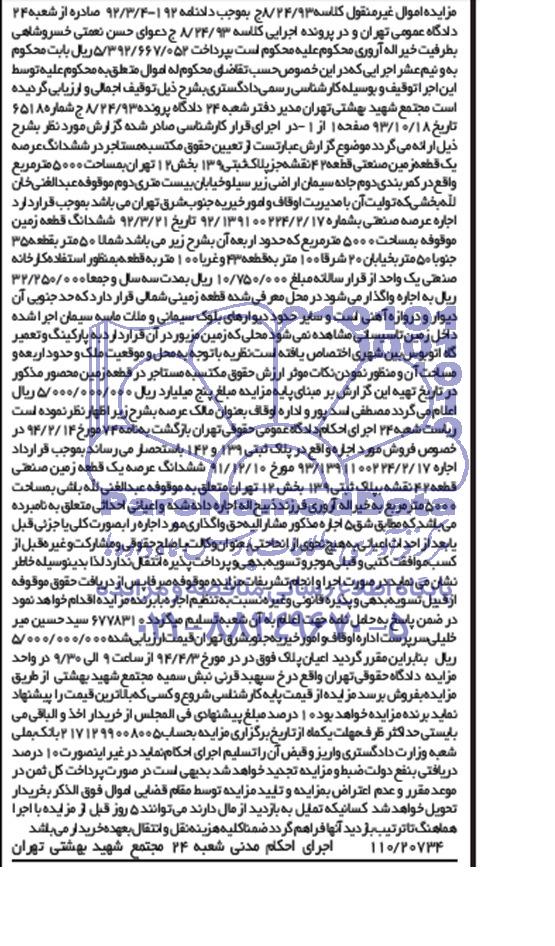 مزایده اموال غیرمنقول کلاسه ۸/۲۴/۹۳ج بموجب دادنامه ۱۹۲-۹۲/۳/۴ صادره از شعبه ۲۴
دادگاه عمومی تهران و در پرونده اجرایی کلاسه ۸/۲۴/۹۳ ج دعوای حسن نعمتی خسروشاهی
بطرفیت خیراله آروری محکوم علیه محکوم است بپرداخت ۵/۳۹۲/۶۶۷/۰۵۲ ریال بابت محکوم
به و نیم عشر اجرایی که در این خصوص حسب تقاضای محکوم له اموال متعلق به محکوم علیه توسط
این اجرا توقیف و بوسیله کارشناسی رسمی دادگستری بشرح ذیل توقیف اجمالی و ارزیابی گردیده
است مجتمع شهید بهشتی تهران مدیر دفتر شعبه ۲۴ دادگاه پرونده ۸/۲۴/۹۳ ج شماره ۶۵۱۸
تاریخ ۹۳/۱۰/۱۸ صفحه ۱ از ۱-در اجرای قرار کارشناسی صادر شده گزارش مورد نظر بشرح
ذیل ارائه می گردد موضوع گزارش عبارتست از تعیین حقوق مکتسبه مستاجر در ششدانگ عرصه
یک قطعه زمین صنعتی قطعه ۴۲ نقشه جز پلاک ثبتی ۱۳۹ بخش ۱۲ تهران بمساحت ۵۰۰۰ مترمربع
واقع در کمربندی دوم جاده سیمان اراضی زیر سیلو خیابان بیست متری دوم موقوفه عبدالغنی خان
لله بخشی که تولیت آن با مدیریت اوقاف و امور خیریه جنوب شرق تهران می باشد بموجب قرارداد
اجاره عرصه صنعتی بشماره ۹۲/۱۳۹۱۰۰۲۲۴/۲/۱۷ تاریخ ۹۲/۳/۲۱ ششدانگ قطعه زمین
موقوفه بمساحت ۵۰۰۰ مترمربع که حدود اربعه آن بشرح زیر می باشد شمالا ۵۰ متر بقطعه ۳۵
جنوبا ۵۰ متر بخیابان ۲۰ شرقا ۱۰۰ متر به قطعه ۴۳ و غربا ۱۰۰ متر به قطعه بمنظور استفاده کارخانه
صنعتی یک واحد از قرار سالانه مبلغ ۱۰/۷۵۰/۰۰۰ ریال بمدت سه سال و جمعا ۳۲/۲۵۰/۰۰۰
ریال به اجاره واگذار می شود در محل معرفی شده قطعه زمینی شمالی قرار دارد که حد جنوبی آن
دیوار و دروازه آهنی است و سایر حدود دیوارهای بلوک سیمانی و ملات ماسه سیمان اجرا شده
داخل زمین تاسیساتی مشاهده نمی شود محلی که زمین مزبور در آن قرار دارد به پارکینگ و تعمیر
گاه اتوبوس بین شهری اختصاص یافته است نظریه با توجه به محل و موقعیت ملک و حدود اربعه و
مساحت آن و منظور نمودن نکات موثر ارزش حقوق مکتسبه مستاجر در قطعه زمین محصور مذکور
در تاریخ تهیه این گزارش بر مبنای پایه مزایده مبلغ پنج میلیارد ریال ۵/۰۰۰/۰۰۰/۰۰۰ ریال
اعلام می گردد مصطفی اسدپور و اداره اوقاف بعنوان مالک عرصه بشرح زیر اظهار نظر نموده است
ریاست شعبه ۲۴ اجرای احکام دادگاه عمومی حقوقی تهران بازگشت به نامه ۷۴ مورخ ۹۴/۲/۱۴ در
خصوص فروش مورد اجاره واقع در پلاک ثبتی ۱۳۹ و ۱۴۲ باستحضار می رساند بموجب قرارداد
اجاره ۹۳/۱۳۹۱۱۰۰۲۲۴/۲/۱۷ مورخ ۹۱/۱۲/۱۰ ششدانگ عرصه یک قطعه زمین صنعتی
قطعه ۴۲ نقشه بپلاک ثبتی ۱۳۹ بخش ۱۲ تهران متعلق به موقوفه عبدالغنی لله باشی بمساحت
۵۰۰۰ مترمربع به خیراله آروری فرزند ذبیح اله اجاره داده شده و اعیانی احداثی متعلق به نامبرده
می باشد که مطابق شق ۵ اجاره مذکور مشارالیه حق واگذاری مورد اجاره را بصورت کلی یا جزئی قبل
یا بعد از احداث اعیانی به هیچ نحوی از انحا حتی بعنوان وکالت یا صلح حقوقی و مشارکت و غیره قبل از
کسب موافقت کتبی و قبلی موجر و تسویه بدهی و پرداخت پذیره انتقال ندارد لذا بدینوسیله خاطر
نشان می نماید در صورت اجرا و انجام تشریفات مزایده موقوفه صرفا پس از دریافت حقوق موقوفه
از قبیل تسویه بدهی و پذیره قانونی و غیره نسبت به تنظیم اجاره با برنده مزایده اقدام خواهد نمود
در ضمن پاسخ به حامل نامه جهت اعلام به آن شعبه تسلیم میگردد ۶۷۷۸۳۱ سید حسین میر
خلیلی سرپرست اداره اوقاف و امور خیریه جنوبشرق تهران قیمت ارزیابی شده ۵/۰۰۰/۰۰۰/۰۰۰
ریال بنابراین مقرر گردید اعیان پلاک فوق در در مورخ ۹۴/۴/۳ از ساعت ۹ الی ۹/۳۰ در واحد
مزایده دادگاه حقوقی تهران واقع در خ سپهبد قرنی نبش سمیه مجتمع شهید بهشتی از طریق
مزایده بفروش برسد مزایده از قیمت پایه کارشناسی شروع و کسی که بالاترین قیمت را پیشنهاد
نماید برنده مزایده خواهد بود ۱۰ درصد مبلغ پیشنهادی فی المجلس از خریدار اخذ و الباقی می
بایستی حداکثر ظرف مهلت یکماه از تاریخ برگزاری مزایده بحساب ۲۱۷۱۲۹۹۰۰۸۰۰۵ بانک ملی
شعبه وزارت دادگستری واریز و قبض آن را تسلیم اجرای احکام نماید در غیر اینصورت ۱۰ درصد
دریافتی بنفع دولت ضبط و مزایده تجدید خواهد شد بدیهی است در صورت پرداخت کل ثمن در
موعد مقرر و عدم اعتراض بمزایده و تایید مزایده توسط مقام قضایی اموال فوق الذکر بخریدار
تحویل خواهد شد کسانیکه تمایل به بازدید از مال دارند می توانند ۵ روز قبل از مزایده با اجرا
هماهنگ تا ترتیب بازدید آنها فراهم گردد ضمنا کلیه هزینه نقل و انتقال بعهده خریدار می باشد
۱۱۰/۲۰۷۳۴ اجرای احکام مدنی شعبه ۲۴ مجتمع شهید بهشتی تهران